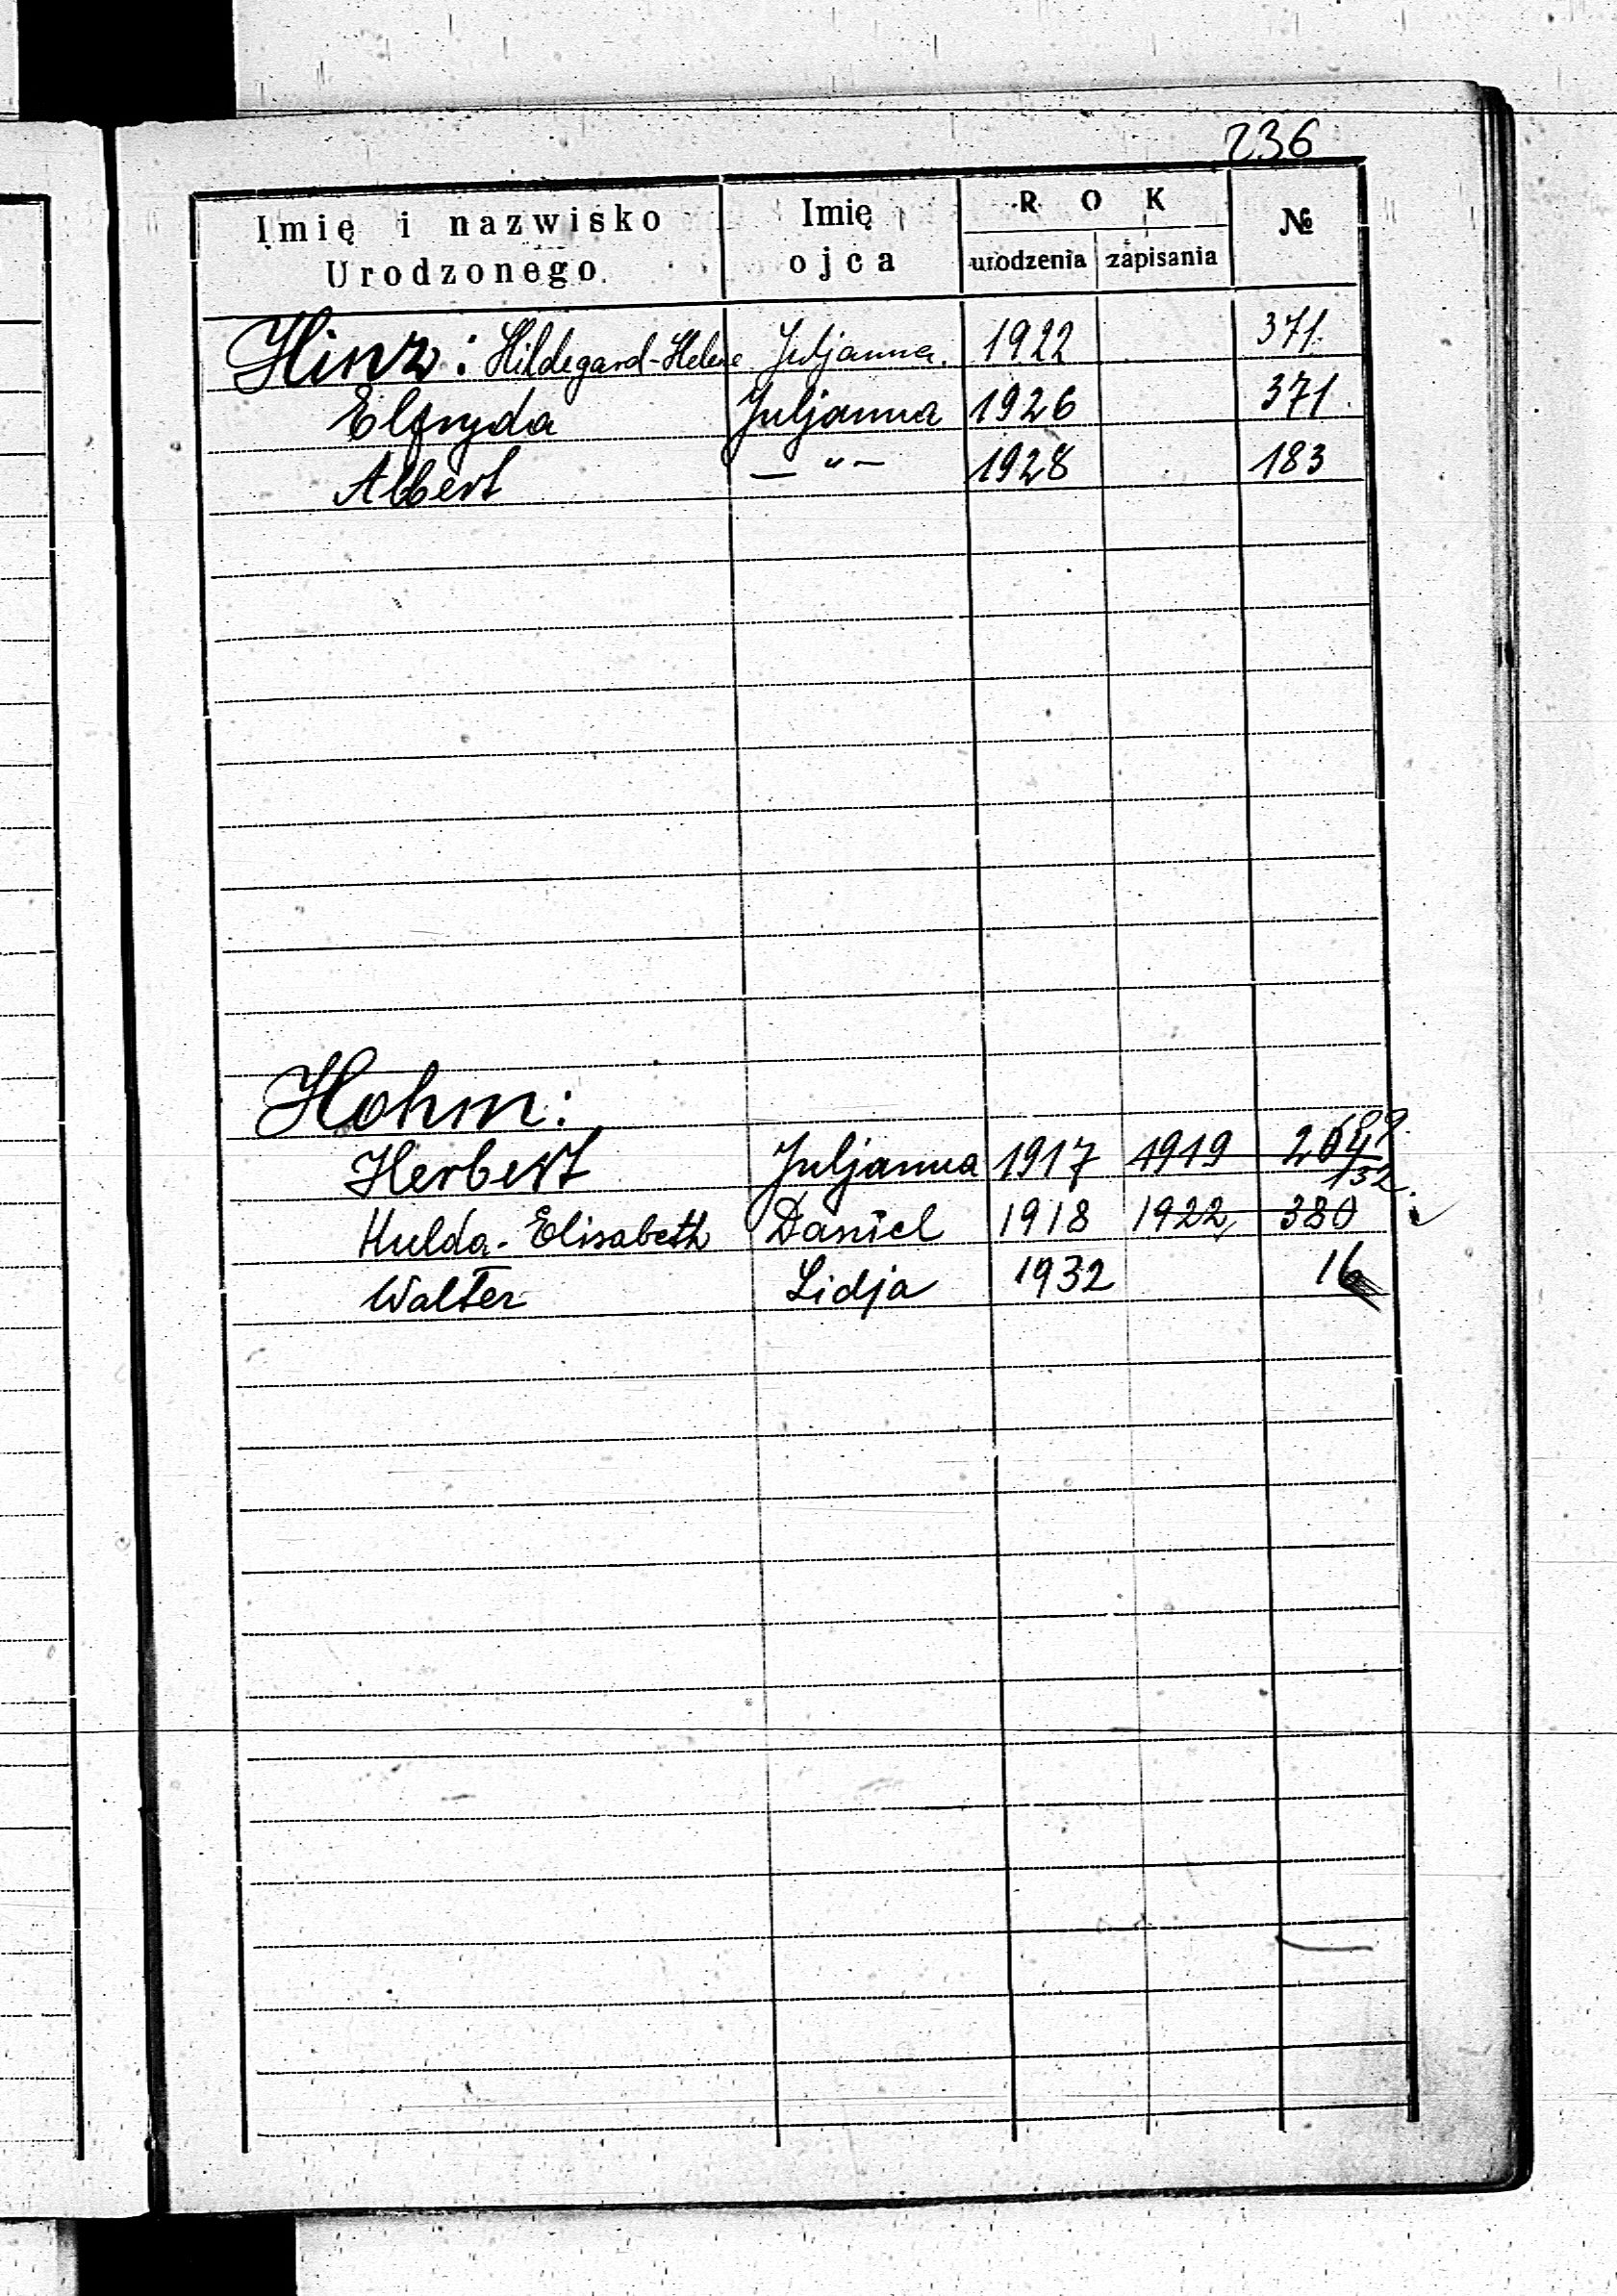 236
Imię i nazwisko Urodzonego
Imię ojca
ROK
urodzenia zapisania
№
Hinz: Hildegard-Helene Juljanna. 1922 371.
Elfryda Juljanna 1926 371.
Albert — " — 1928 183
Hohm:
Herbert Juljanna 1917 1919
132.
Hulda-Elisabeth Daniel 1918 1922, 380
Walter Lidja 1932 16